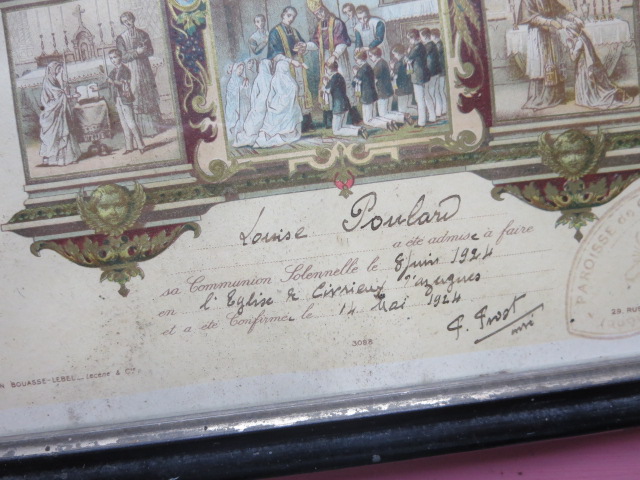 Louise Poulard
a été admise à faire
sa Communion Solennelle le 8 Juin 1924
en l'Eglise de Civrieux d'azergues
et a été Confirmée le 14 Mai 1924
curé
3088
N BOUASSE-LEBEL_ Lecène & Cie
PAROISSE
29, RU